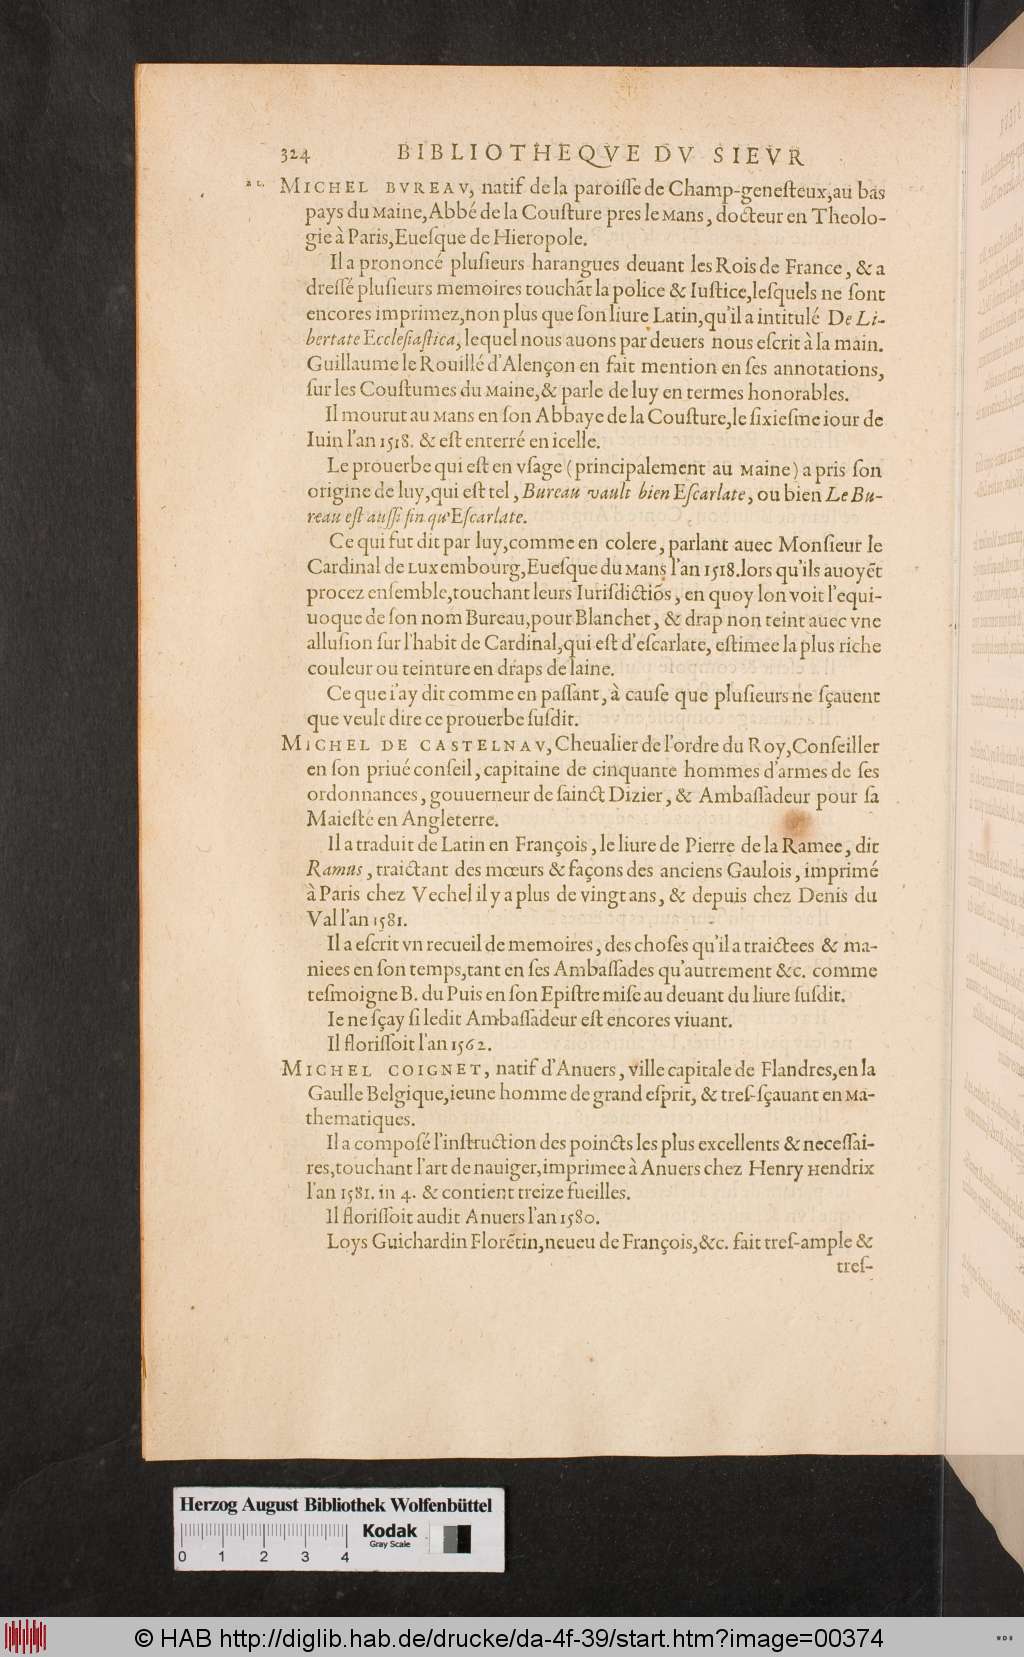 324 BIBLIOTHEQVE DV SIEVR
MICHEL BVREAV, natif de la paroiſſe de Champ-geneſteux,au bas
pays du Maine,Abbé de la Couſture pres le Mans, docteur en Theolo-
gie à Paris,Eueſque de Hieropole.
Il a prononcé pluſieurs harangues deuant les Rois de France, & a
dreſſé pluſieurs memoires touchãt la police & Iuſtice,leſquels ne ſont
encores imprimez,non plus que ſon liure Latin,qu'il a intitulé De Li-
bertate Eccleſiaſtica, lequel nous auons par deuers nous eſcrit à la main.
Guillaume le Rouillé d'Alençon en fait mention en ſes annotations,
ſur les Couſtumes du Maine,& parle de luy en termes honorables.
Il mourut au Mans en ſon Abbaye de la Couſture,le ſixieſme iour de
Iuin l'an 1518. & eſt enterré en icelle.
Le prouerbe qui eſt en vſage (principalement au Maine) a pris ſon
origine de luy,qui eſt tel, Bureau vault bien Eſcarlate, ou bien Le Bu-
reau eſt auſſi fin qu'Eſcarlate.
Ce qui fut dit par luy,comme en colere, parlant auec Monſieur le
Cardinal de Luxembourg,Eueſque du Mans l'an 1518.lors qu'ils auoyẽt
procez enſemble,touchant leurs Iuriſdictiõs, en quoy lon voit l'equi-
uoque de ſon nom Bureau,pour Blanchet, & drap non teint auec vne
alluſion ſur l'habit de Cardinal,qui eſt d'eſcarlate, eſtimee la plus riche
couleur ou teinture en draps de laine.
Ce que i'ay dit comme en paſſant, à cauſe que pluſieurs ne ſçauent
que veult dire ce prouerbe ſuſdit.
MICHEL DE CASTELNAV, Cheualier de l'ordre du Roy,Conſeiller
en ſon priué conſeil, capitaine de cinquante hommes d'armes de ſes
ordonnances, gouuerneur de ſainct Dizier, & Ambaſſadeur pour ſa
Maieſté en Angleterre.
Il a traduit de Latin en François, le liure de Pierre de la Ramee, dit
Ramus, traictant des mœurs & façons des anciens Gaulois, imprimé
à Paris chez Vechel il y a plus de vingt ans, & depuis chez Denis du
Val l'an 1581.
Il a eſcrit vn recueil de memoires, des choſes qu'il a traictees & ma-
niees en ſon temps,tant en ſes Ambaſſades qu'autrement &c. comme
teſmoigne B. du Puis en ſon Epiſtre miſe au deuant du liure ſuſdit.
Ie ne ſçay ſi ledit Ambaſſadeur eſt encores viuant.
Il floriſſoit l'an 1562.
MICHEL COIGNET, natif d'Anuers, ville capitale de Flandres,en la
Gaulle Belgique,ieune homme de grand eſprit, & treſ-ſçauant en Ma-
thematiques.
Il a compoſé l'inſtruction des poincts les plus excellents & neceſſai-
res,touchant l'art de nauiger,imprimee à Anuers chez Henry Hendrix
l'an 1581. in 4. & contient treize fueilles.
Il floriſſoit audit Anuers l'an 1580.
Loys Guichardin Florẽtin,neueu de François,&c. fait treſ-ample &
treſ-
Herzog August Bibliothek Wolfenbüttel
Kodak
Gray Scale
0 1 2 3 4
© HAB http://diglib.hab.de/drucke/da-4f-39/start.htm?image=00374